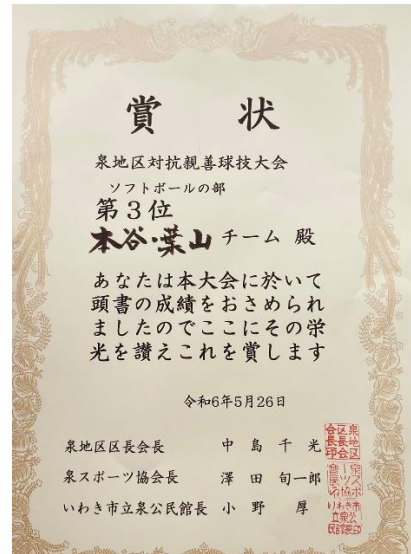 賞状
泉地区対抗親善球技大会
ソフトボールの部
第3位
本谷・葉山チーム 殿
あなたは本大会に於いて
頭書の成績をおさめられ
ましたのでここにその栄
光を讃えこれを賞します
令和6年5月26日
泉地区区長会長 中島千光
泉スポーツ協会長 澤田旬一郎
いわき市立泉公民館長 小野厚
泉地区
区長会
会長印